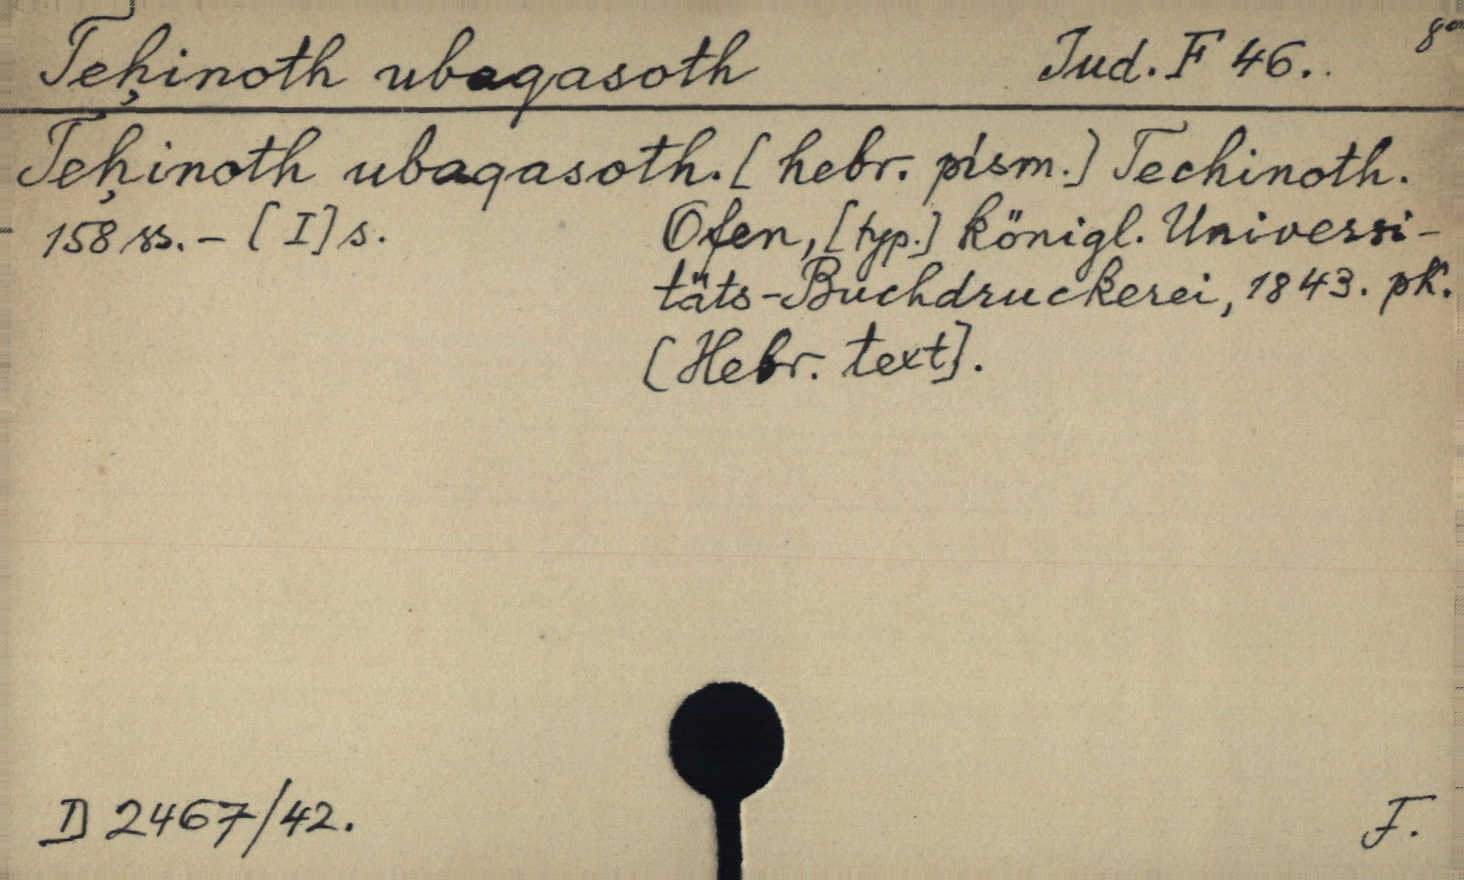 Teḥinoth ubaqasoth Jud. F 46. 8°
Teḥinoth ubaqasoth. [hebr. písm.] Techinoth.
158 ss. - [I] s. Ofen, [typ.] königl. Universi-
täts-Buchdruckerei, 1843. pk.
[Hebr. text].
D 2467/42. F.